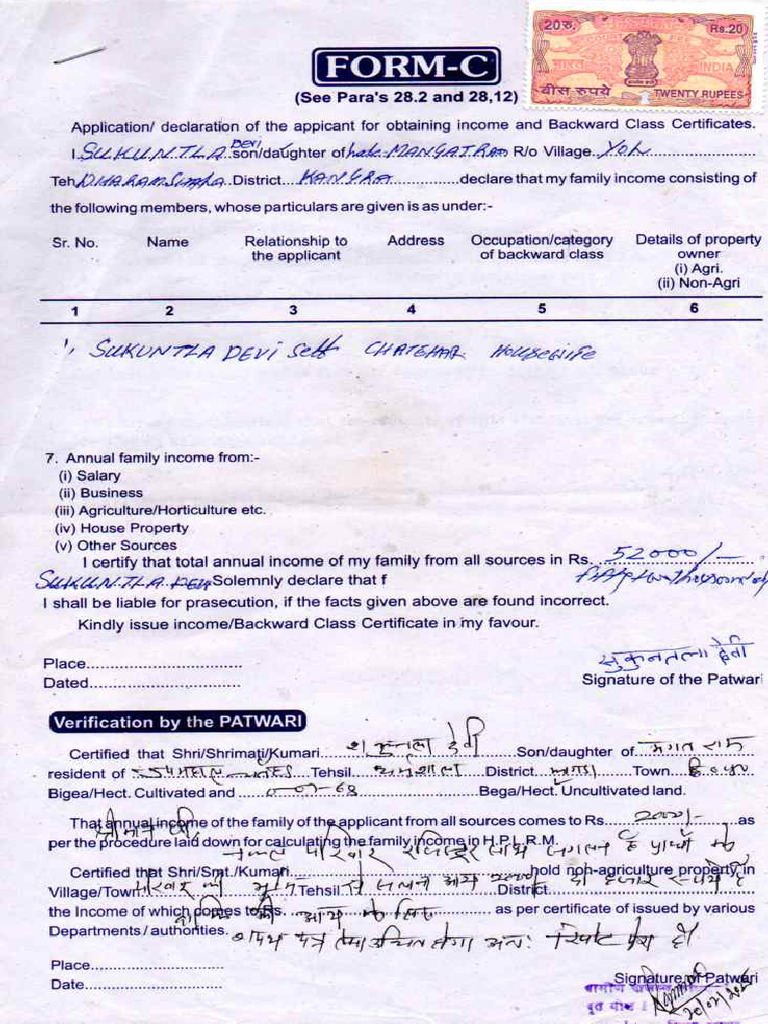 20रु. Rs.20
भारत INDIA
बीस रुपये TWENTY RUPEES
FORM-C
(See Para's 28.2 and 28,12)
Application/ declaration of the applicant for obtaining income and Backward Class Certificates.
I SUKUNTLA DEVI son/daughter of MANGATRAM R/o Village YOL
Teh DHARAMSHALA District KANGRA declare that my family income consisting of
the following members, whose particulars are given is as under:-
Sr. No. Name Relationship to the applicant Address Occupation/category of backward class Details of property owner (i) Agri. (ii) Non-Agri
1 2 3 4 5 6
1, SUKUNTLA DEVI Self CHATEHAR Housewife
7. Annual family income from:-
(i) Salary
(ii) Business
(iii) Agriculture/Horticulture etc.
(iv) House Property
(v) Other Sources
I certify that total annual income of my family from all sources in Rs. 52000/-
SUKUNTLA DEVI Solemnly declare that f
I shall be liable for prasecution, if the facts given above are found incorrect.
Kindly issue income/Backward Class Certificate in my favour.
सुकुनतला देवी
Place
Dated
Signature of the Patwari
Verification by the PATWARI
Certified that Shri/Shrimati/Kumari शकुन्तला देवी Son/daughter of मंगत राम
resident of Tehsil धर्मशाला District कांगड़ा Town
Bigea/Hect. Cultivated and 0-09-68 Bega/Hect. Uncultivated land.
That annual income of the family of the applicant from all sources comes to Rs. 2000/- as
श्रीमान जी,
per the procedure laid down for calculating the family income in H.P.L.R.M.
नकल परिवार रजिस्टर साथ संलग्न है प्रार्थी के
Certified that Shri/Smt./Kumari hold non-agriculture property in
Village/Town Tehsil District
the Income of which comes to Rs. as per certificate of issued by various
Departments/authorities.
शपथ पत्र लेना उचित होगा अतः रिपोर्ट पेश है
Place
Date
Signature of Patwari
20/02/2025